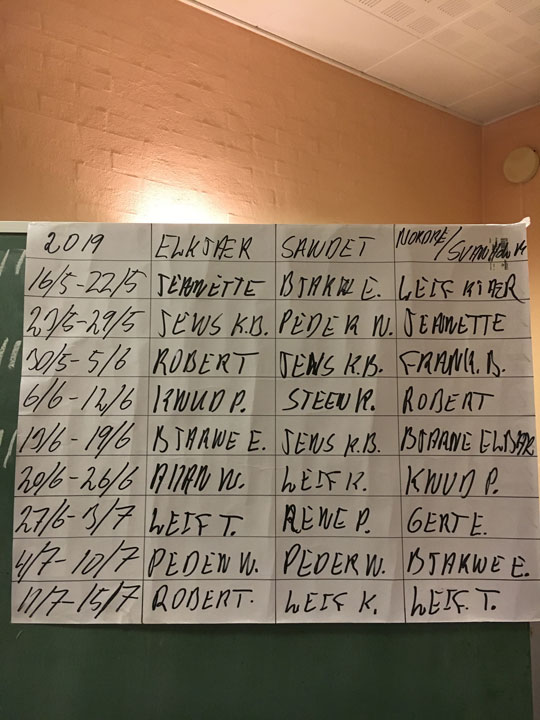 2019 ELKJÆR SANDET NORDRE/
16/5-22/5 JEANETTE BJARNE E. LEIF KJÆR
23/5-29/5 JENS K.B. PEDER N. JEANETTE
30/5-5/6 ROBERT JENS K.B. FRANK. B.
6/6-12/6 KNUD P. STEEN K. ROBERT
13/6-19/6 BJARNE E. JENS K.B. BJARNE ELKJÆR
20/6-26/6 ALLAN N. LEIF K. KNUD P.
27/6-3/7 LEIF T. RENE P. GERT E.
4/7-10/7 PEDER N. PEDER N. BJARNE E.
11/7-15/7 ROBERT. LEIF K. LEIF. T.